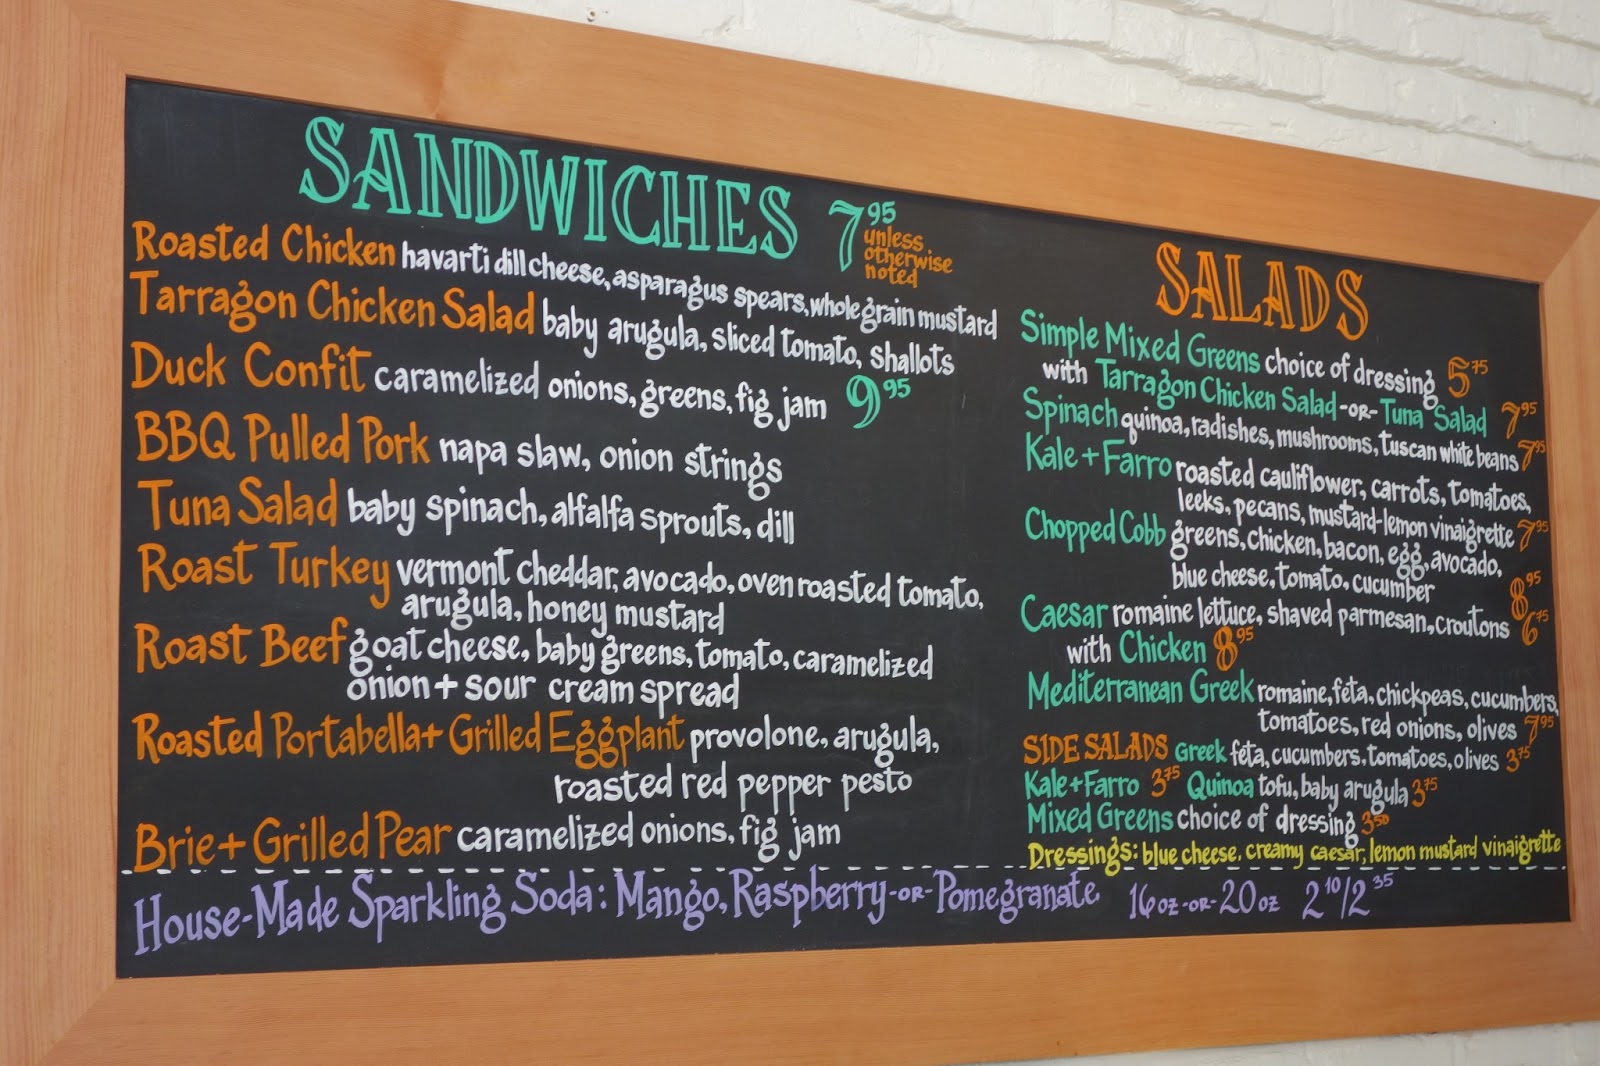 SANDWICHES 7 95 unless
otherwise
noted
Roasted Chicken havarti dill cheese, asparagus spears, whole grain mustard
Tarragon Chicken Salad baby arugula, sliced tomato, shallots
Duck Confit caramelized onions, greens, fig jam 9 95
BBQ Pulled Pork napa slaw, onion strings
Tuna Salad baby spinach, alfalfa sprouts, dill
Roast Turkey vermont cheddar, avocado, oven roasted tomato,
arugula, honey mustard
Roast Beef goat cheese, baby greens, tomato, caramelized
onion + sour cream spread
Roasted Portabella + Grilled Eggplant provolone, arugula,
roasted red pepper pesto
Brie + Grilled Pear caramelized onions, fig jam
SALADS
Simple Mixed Greens choice of dressing 5 75
with Tarragon Chicken Salad -OR- Tuna Salad 7 95
Spinach quinoa, radishes, mushrooms, tuscan white beans 7 95
Kale + Farro roasted cauliflower, carrots, tomatoes,
leeks, pecans, mustard-lemon vinaigrette 7 95
Chopped Cobb greens, chicken, bacon, egg, avocado,
blue cheese, tomato, cucumber 8 95
Caesar romaine lettuce, shaved parmesan, croutons 6 75
with Chicken 8 95
Mediterranean Greek romaine, feta, chickpeas, cucumbers,
tomatoes, red onions, olives 7 95
SIDE SALADS Greek feta, cucumbers, tomatoes, olives 3 75
Kale + Farro 3 75 Quinoa tofu, baby arugula 3 75
Mixed Greens choice of dressing 3 50
Dressings: blue cheese, creamy caesar, lemon mustard vinaigrette
House-Made Sparkling Soda: Mango, Raspberry -OR- Pomegranate 16 oz -OR- 20 oz 2 10/2 35